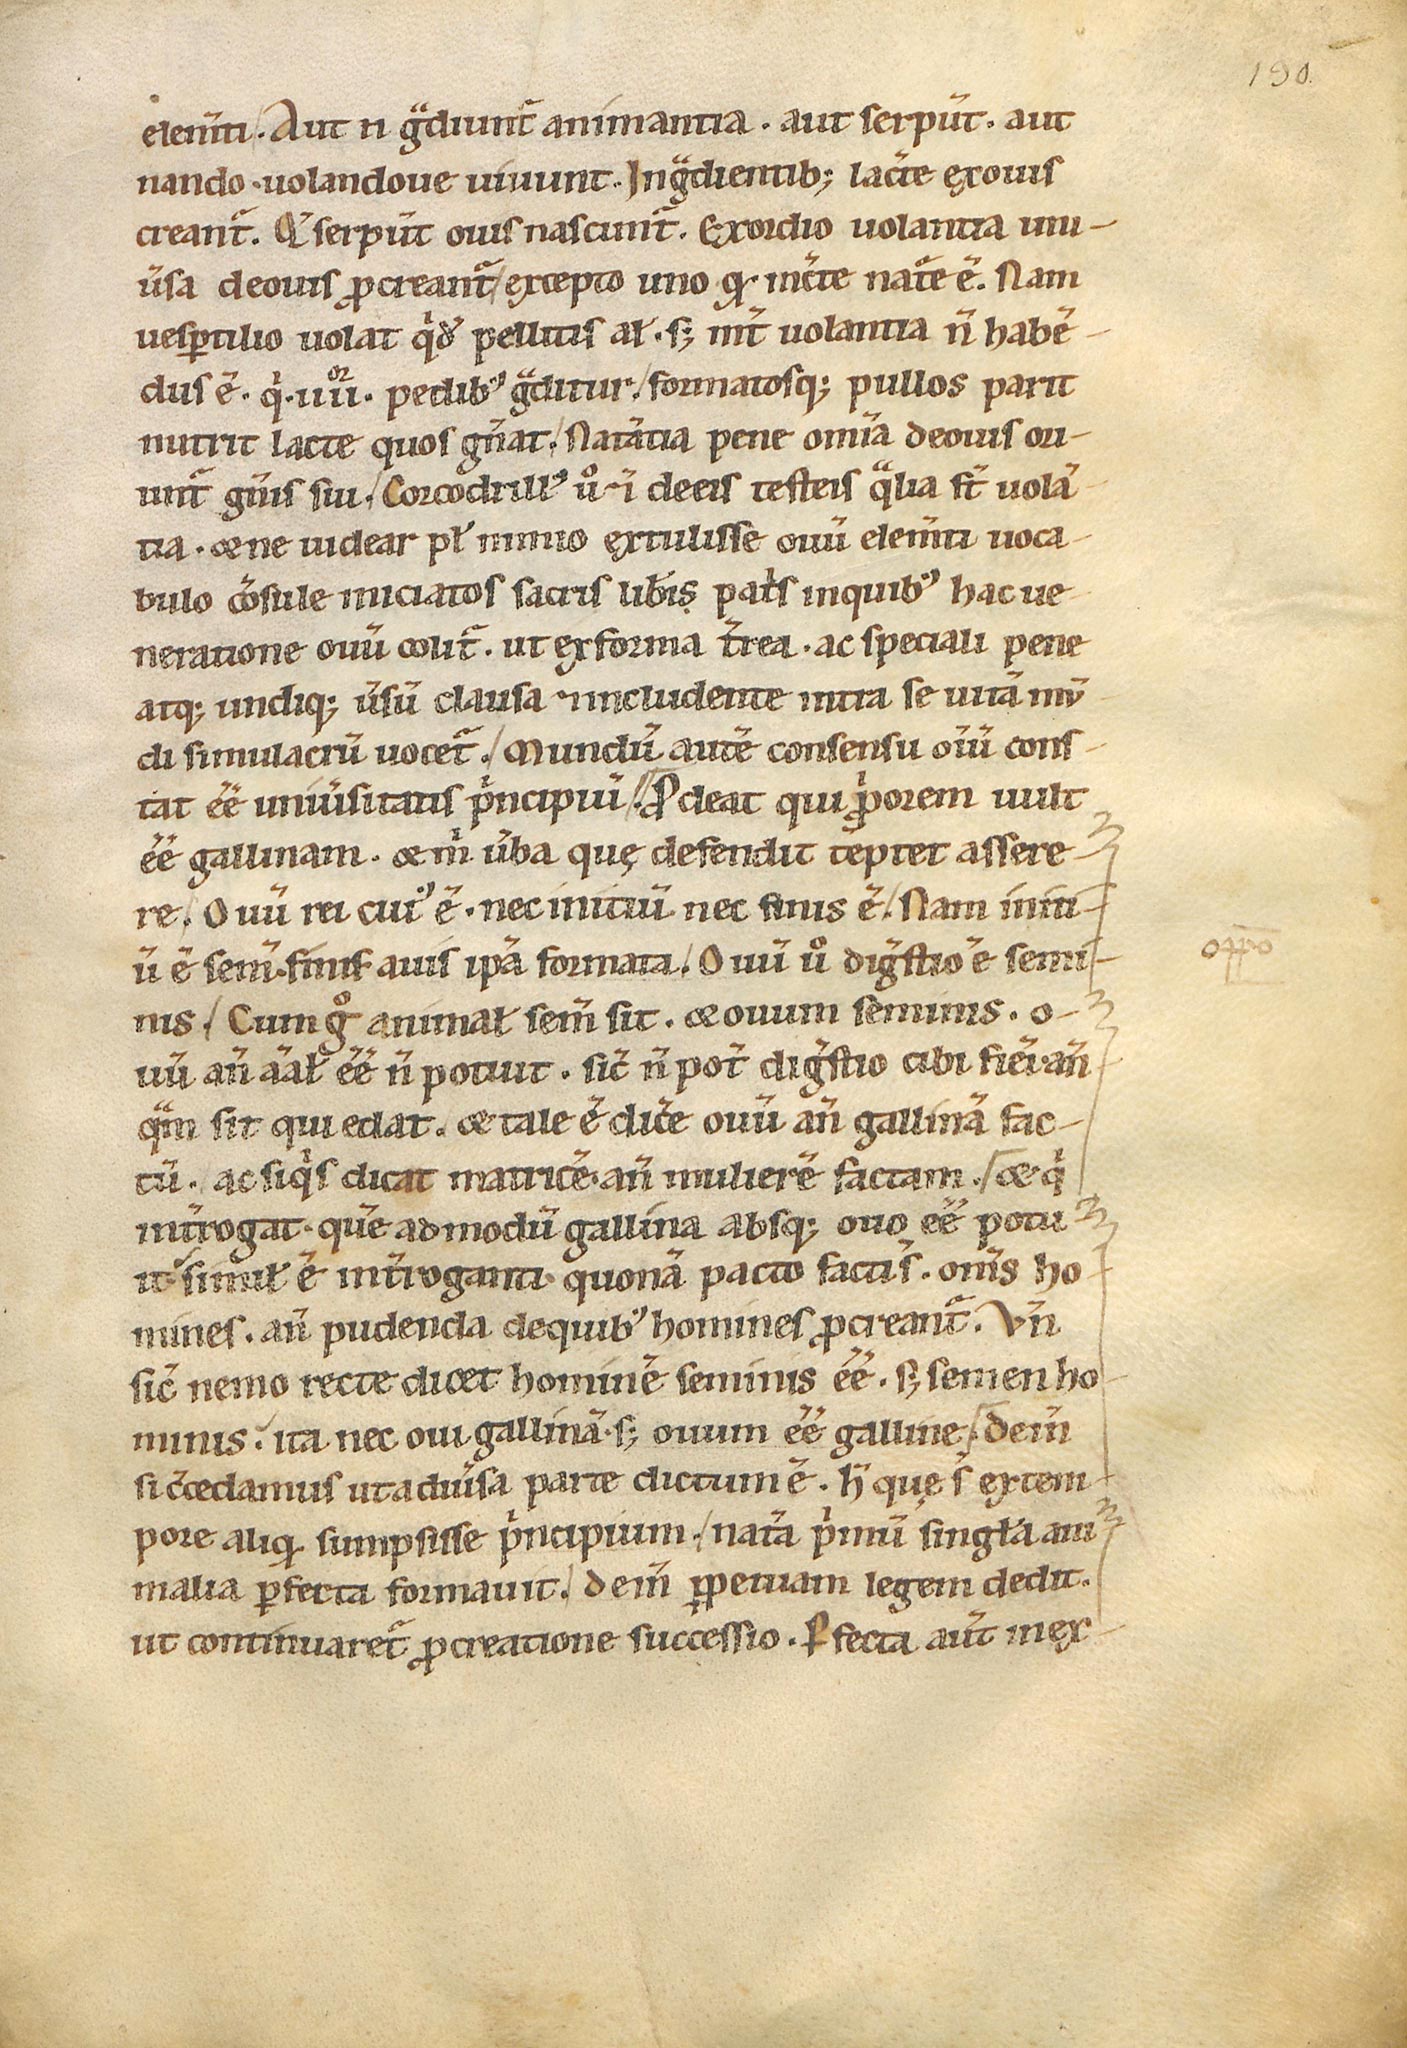 190.
elem̄ti. Aut n̄ gͣdiunt᷑ animantia. aut serpūt. aut
nando. uolandoue uiuunt. Ingͣdientib; lac̄te ex ouis
creant᷑. Q serpūt ouis nascunt᷑. Exordio uolantia uni-
ūsa de ouis ꝓcreant᷑ / excepto uno q inc̄te nat᷑e ē. Nam
uesꝑtilio uolat qͥd pellitis ał. s; int̄ uolantia n̄ habē-
dus ē. qͥ .iiii. pedibꝰ gͣditur. / formatosq; pullos parit
nutrit lacte quos gn̄at. / Natātia pene omīa de ouis ori-
unt᷑ gn̄is sui. / Corcodrillꝰ uͦ ⁊ de eis testeis qͣlia st̄ uolā-
tia. & ne uidear pł nimio extulisse ouū elem̄ti uoca-
bulo c̄osule iniciatos sacris lib̄is pat̄s in quibꝰ hac ue-
neratione ouū colit᷑. ut ex forma t̄rea. ac speciali pene
atq; undiq; ūsū clausa ⁊ includente intra se uitā mū-
di simulacrū uocet᷑. / Mundū autē consensu oīū cons-
tat ēē uniūsitatis pͥncipiū. / ꝓdeat qui pͥorem uult
ēē gallinam. & in̄ ūba quę defendit tēptet assere-
re. / Ouū rei cuiꝰ ē. nec initiū nec finis ē. / Nam initi-
ū ē sem̄. finis auis ipā formata. / Ouū uͦ diḡstio ē semi-
nis. / Cum gͦ animał sem̄ sit. & ouum seminis. o-
uū an̄ aāł ēē n̄ potuit. sic̄ n̄ pot̄ diḡstio cibi fieri. an̄
qͣm sit qui edat. & tale ē dic̄e ouū an̄ gallinā fac-
tū. ac siqͥs dicat matricē. an̄ mulierē factam. / & qͥ
int̄rogat. quē ad modū gallina absq; ouo ēē potu-
it. simił ē int̄roganti. quonā pacto facti s̄. om̄s ho-
mines. an̄ pudenda de quibꝰ homines ꝓcreant᷑. Vn̄
sic̄ nemo recte dicet hominē seminis ēē. s; semen ho-
minis. ita nec oui gallinā. s; ouum ēē galline. / dein̄
si c̄cedamus ut aduīsa parte dictum ē. h̄ quę s̄ ex tem-
pore aliq sumpsisse pͥncipium. / nat̄a pͥmū singł̄a ani-
malia ꝑfecta formauit. / dein̄ ꝑpetuam legem dedit.
ut continuaret᷑ ꝓcreatione successio. ꝑfecta aut̄ in ex-
oppo